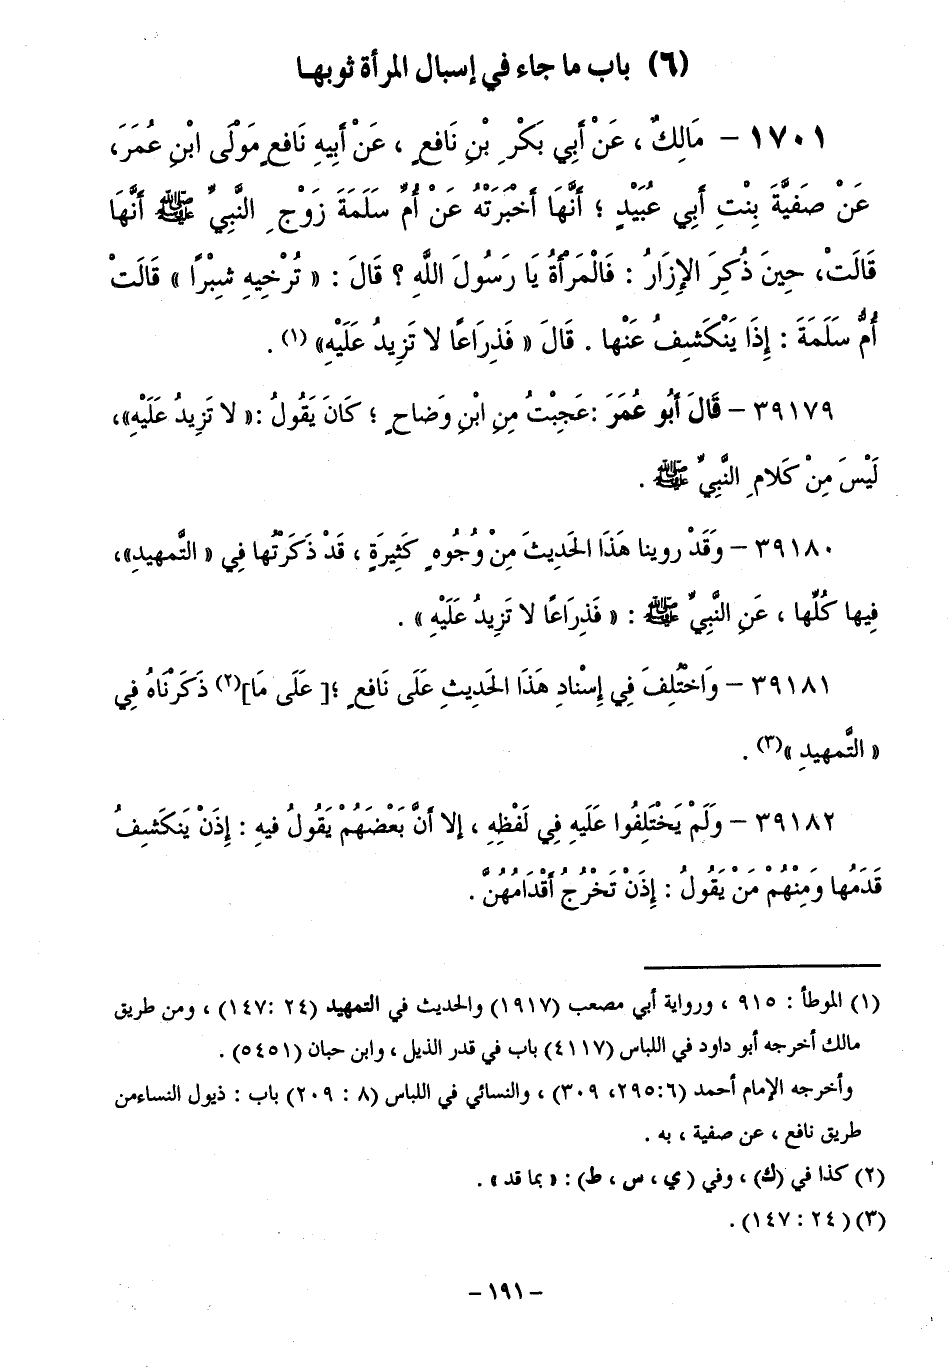 (٦) باب ما جاء في إسبال المرأة ثوبها
١٧٠١ – مَالِكٌ ، عَنْ أَبِي بَكْرِ بْنِ نَافِعٍ ، عَنْ أَبِيهِ نَافِعٍ مَوْلَى ابْنِ عُمَرَ،
عَنْ صَفِيَّةَ بِنْتِ أَبِي عُبَيْدٍ ؛ أَنَّهَا أَخْبَرَتْهُ عَنْ أُمِّ سَلَمَةَ زَوْجِ النَّبِيِّ ﷺ أَنَّهَا
قَالَتْ، حِينَ ذُكِرَ الإِزَارُ : فَالْمَرْأَةُ يَا رَسُولَ اللَّهِ ؟ قَالَ : « تُرْخِيهِ شِبْرًا » قَالَتْ
أُمُّ سَلَمَةَ : إِذًا يَنْكَشِفُ عَنْها . قَالَ « فَذِرَاعًا لا تَزِيدُ عَلَيْهِ» (١) .
٣٩١٧٩ – قَالَ أَبُو عُمَرَ :عَجِبْتُ مِنِ ابْنِ وَضاحٍ ؛ كَانَ يَقُولُ :« لا تَزِيدُ عَلَيْهِ»،
لَيْسَ مِنْ كَلامِ النَّبِيِّ ﷺ .
٣٩١٨٠ – وَقَدْ روينا هَذَا الحَدِيثَ مِنْ وُجُوهٍ كَثِيرَةٍ ، قَدْ ذَكَرْتُها فِي « التَّمهيدِ»،
فِيها كُلِّها ، عَنِ النَّبِيِّ ﷺ : « فَذِرَاعًا لا تَزِيدُ عَلَيْهِ » .
٣٩١٨١ – وَاخْتُلِفَ فِي إِسْنادِ هَذَا الحَدِيثِ عَلَى نَافعٍ ؛[ عَلَى مَا](٢) ذَكَرْنَاهُ فِي
« التَّمهيدِ »(٣) .
٣٩١٨٢ – وَلَمْ يَخْتَلِفُوا عَلَيهِ فِي لَفْظِهِ ، إلا أَنَّ بَعْضَهُمْ يَقُولُ فيهِ : إِذَنْ يَنكَشِفُ
قَدَمُها وَمِنْهُمْ مَنْ يَقُولُ : إِذَنْ تَخْرُجُ أَقْدَامُهُنَّ .
(١) الموطأ : ٩١٥ ، ورواية أبي مصعب (١٩١٧) والحديث في التمهيد (٢٤ :١٤٧) ، ومن طريق
مالك أخرجه أبو داود في اللباس (٤١١٧) باب في قدر الذيل ، وابن حبان (٥٤٥١) .
وأخرجه الإمام أحمد (٦:٢٩٥، ٣٠٩) ، والنسائي في اللباس (٨ : ٢٠٩) باب : ذيول النساءمن
طريق نافع ، عن صفية ، به .
(٢) كذا في (ك) ، وفي (ي ، س ، ط) : « بما قد » .
(٣) (٢٤ : ١٤٧) .
– ١٩١ –